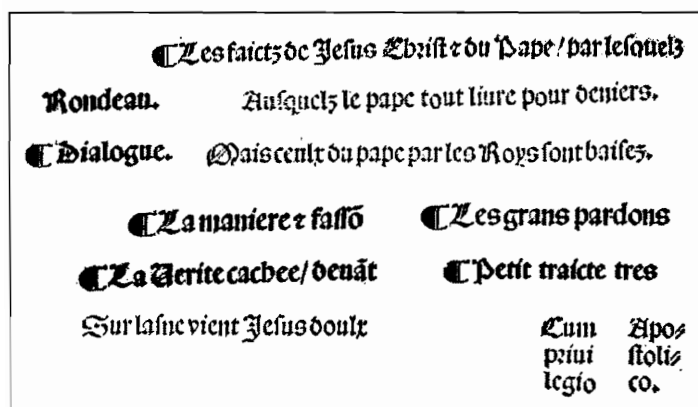 ¶ Les faictz de Jesus Christ ⁊ du Pape / par lesquelz
Rondeau. Ausquelz le pape tout liure pour deniers.
¶ Dialogue. Mais ceulx du pape par les Roys sont baisez.
¶ La maniere ⁊ fassõ ¶ Les grans pardons
¶ La Uerite cachee / deuãt ¶ Petit traicte tres
Sur lasne vient Jesus doulx
Cum Apo⸗
priui stoli⸗
legio co.